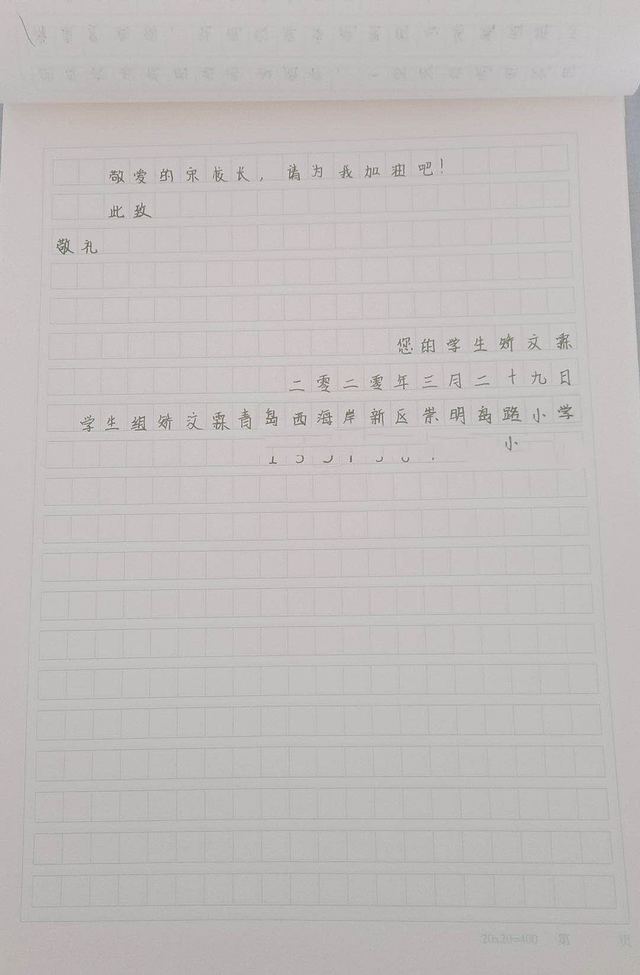 敬爱的宋校长，请为我加油吧！
此致
敬礼
您的学生矫文霖
二零二零年三月二十九日
学生组矫文霖青岛西海岸新区崇明岛路小学
小
20x20=400 第 页